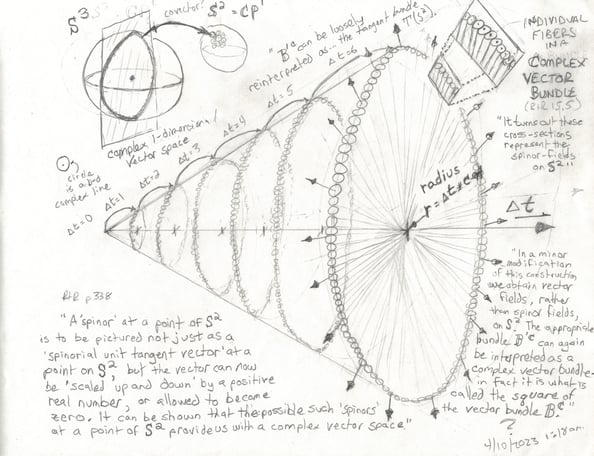 S³
covector?
S² = CP¹
"Bᶜ can be loosely
reinterpreted as... the tangent bundle
T(S²).
INDIVIDUAL
FIBERS
IN A
COMPLEX
VECTOR
BUNDLE
(RtR 15.5)
"It turns out these
cross-sections
represent the
spinor-fields
on S²"
complex 1-dimensional
vector space
circle
is a
complex line
Δt=0
Δt=1
Δt=2
Δt=3
Δt=4
Δt=5
Δt=6
radius
r=Δt×c
Δt
RtR p338
"A 'spinor' at a point of S²
is to be pictured not just as a
'spinorial unit tangent vector' at a
point on S² but the vector can now
be 'scaled' up and down by a positive
real number, or allowed to become
zero. It can be shown that the possible such 'spinors'
at a point of S² provide us with a complex vector space"
"In a minor
modification
of this construction
we obtain vector
fields, rather
than spinor fields,
on S². The appropriate
bundle B'ᶜ can again
be interpreted as a
complex vector bundle-
in fact it is what is
called the square of
the vector bundle Bᶜ"
?
4/10/2023